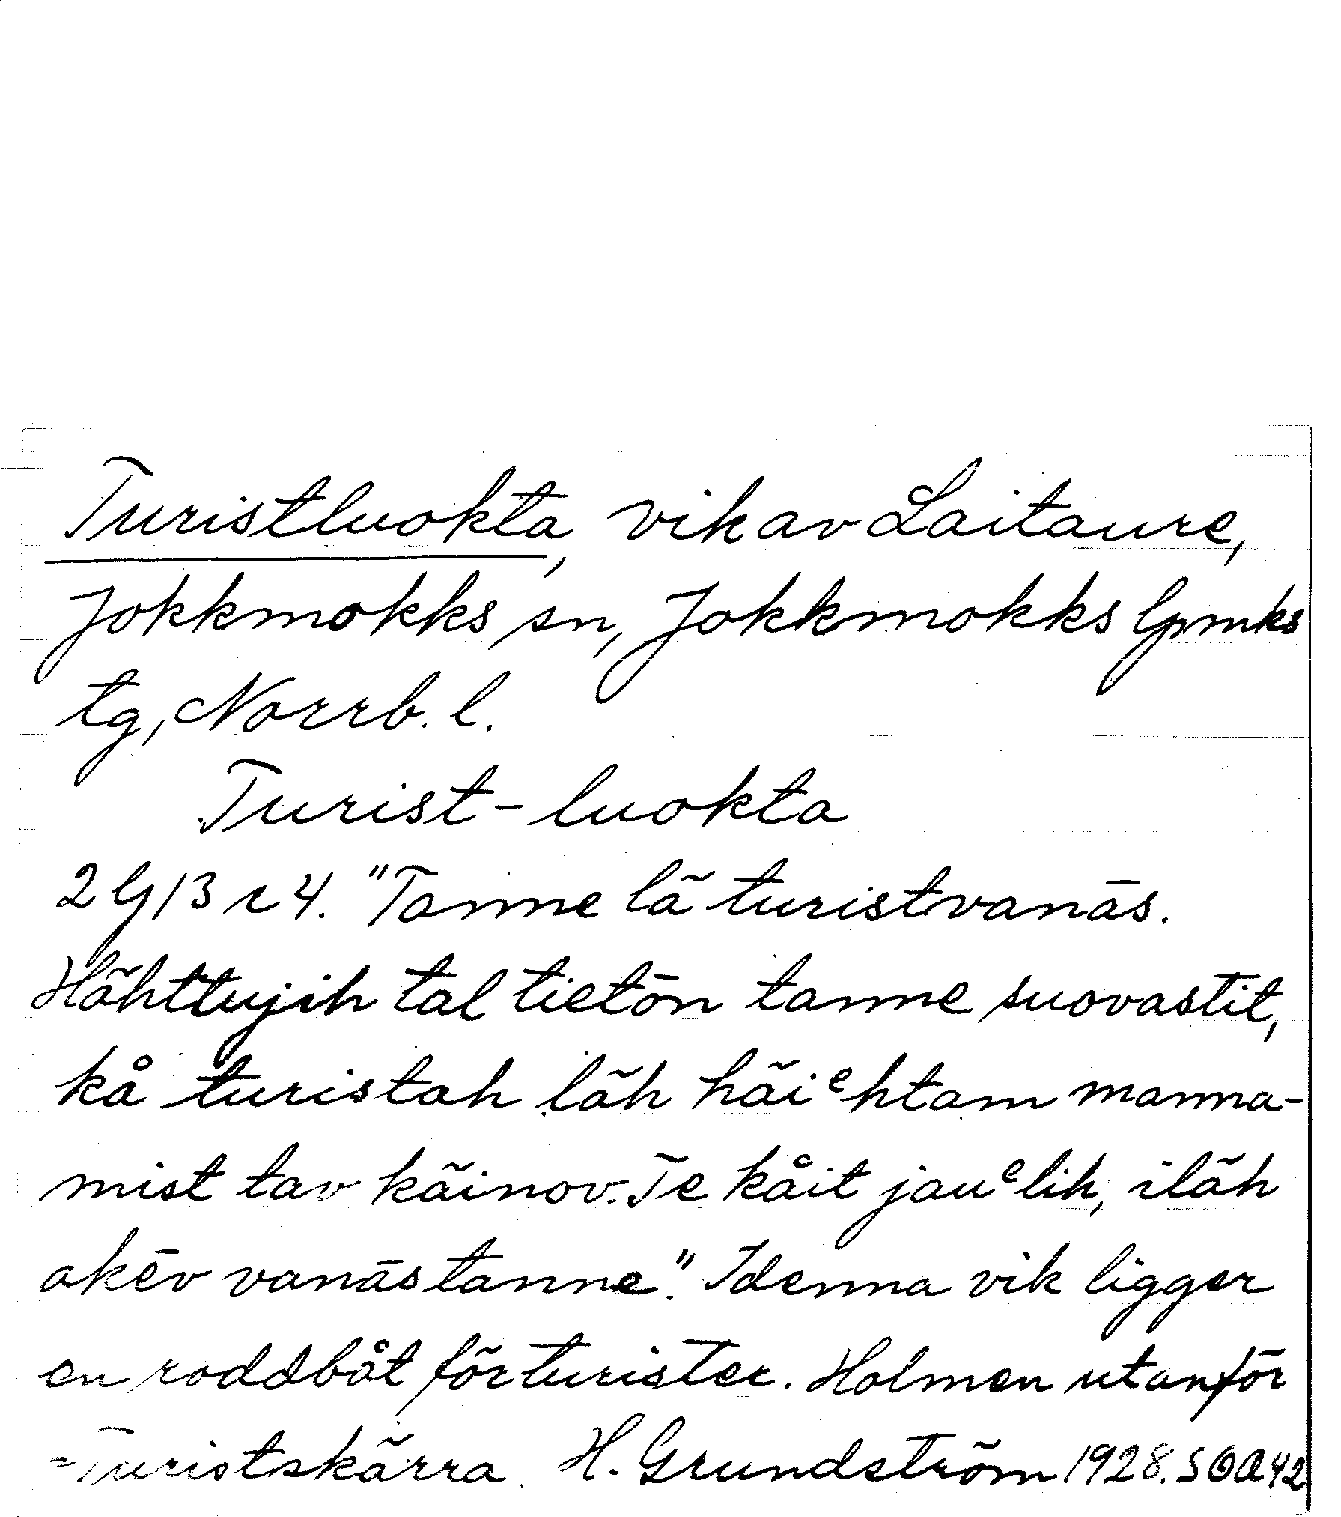 Turistluokta, vik av Laitaure,
Jokkmokks sn, Jokkmokks lpmks
tg, Norrb. l.
Turist-luokta
2 G 13 r 4. "Tanne lä turistvanās.
Hähttujih tal tietōn tanne suovastit,
kå turistah läh häiᵉhtam manna-
mist tav käinov. Te kåit jauᵉlih, iläh
akēv vanās tanne". I denna vik ligger
en roddbåt för turister. Holmen utanför
=Turistskärra. H. Grundström 1928. SOA 42